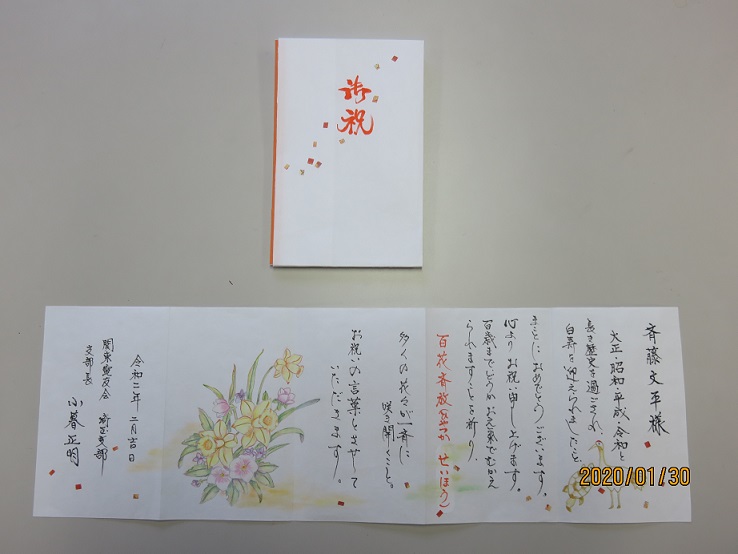 御祝
斉藤文平様
大正・昭和・平成・令和と
長き歴史を過ごされ、
白寿を迎えられましたこと、
まことにおめでとうございます。
心よりお祝い申し上げます。
百歳までどうかお元気でむかえ
られますことを祈り、
百花斉放(ひゃっか せいほう)
多くの花々が一斉に
咲き開くこと。
お祝いの言葉とさせて
いただきます。
令和二年 二月吉日
関東 友会 支部
支部長 小暮正明
2020/01/30